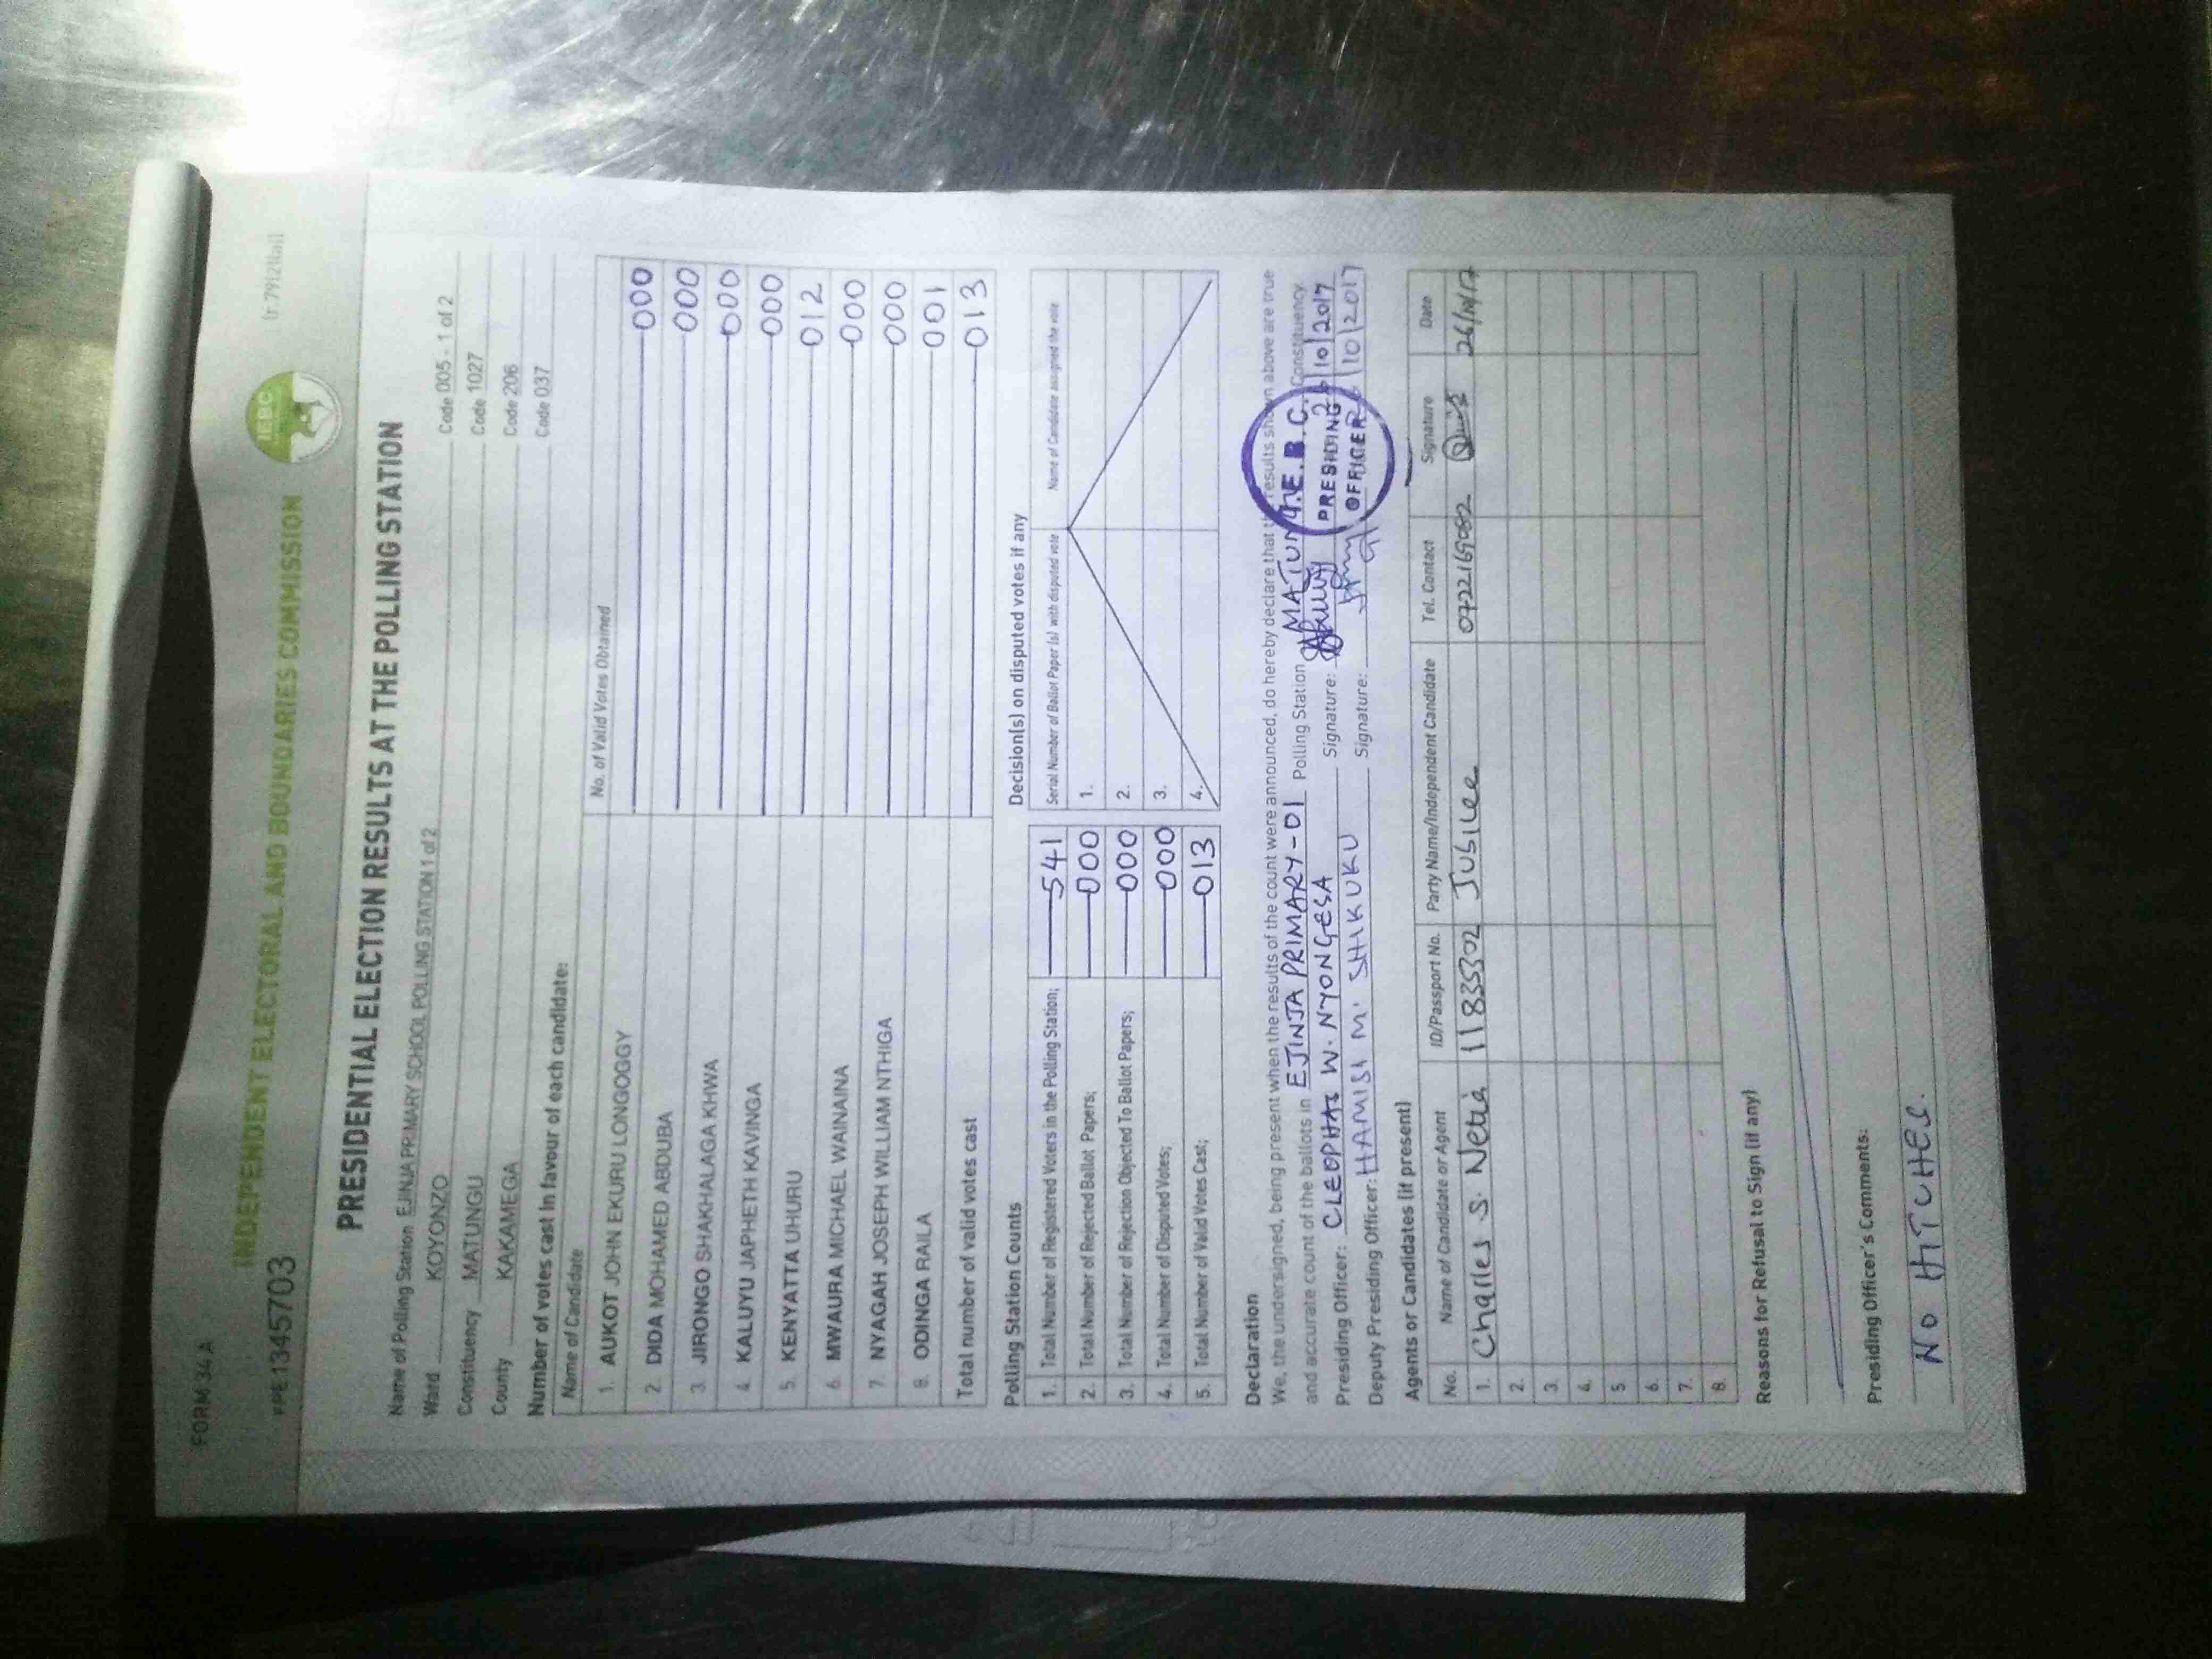 FORM 34A
INDEPENDENT ELECTORAL AND BOUNDARIES COMMISSION
(r.79(2)(a))
PPE 1345703
IEBC
PRESIDENTIAL ELECTION RESULTS AT THE POLLING STATION
Name of Polling Station EJINJA PRIMARY SCHOOL POLLING STATION 1 of 2 Code 005 - 1 of 2
Ward KOYONZO Code 1027
Constituency MATUNGU Code 206
County KAKAMEGA Code 037
Number of votes cast in favour of each candidate:
Name of Candidate No. of Valid Votes Obtained
1. AUKOT JOHN EKURU LONGOGGY 000
2. DIDA MOHAMED ABDUBA 000
3. JIRONGO SHAKHALAGA KHWA 000
4. KALUYU JAPHETH KAVINGA 000
5. KENYATTA UHURU 012
6. MWAURA MICHAEL WAINAINA 000
7. NYAGAH JOSEPH WILLIAM NTHIGA 000
8. ODINGA RAILA 001
Total number of valid votes cast 013
Polling Station Counts
1. Total Number of Registered Voters in the Polling Station; 541
2. Total Number of Rejected Ballot Papers; 000
3. Total Number of Rejection Objected To Ballot Papers; 000
4. Total Number of Disputed Votes; 000
5. Total Number of Valid Votes Cast; 013
Decision(s) on disputed votes if any
Serial Number of Ballot Paper (s) with disputed vote Name of Candidate assigned the vote
1.
2.
3.
4.
Declaration
We, the undersigned, being present when the results of the count were announced, do hereby declare that the results shown above are true
and accurate count of the ballots in EJINJA PRIMARY-01 Polling Station MATUNGU Constituency.
Presiding Officer: CLEOPHAS W. NYONGESA Signature: 26/10/2017
Deputy Presiding Officer: HAMISI M. SHIKUKU Signature: 10/2017
I.E.B.C.
PRESIDING
OFFICER
Agents or Candidates (if present)
No. Name of Candidate or Agent ID/Passport No. Party Name/Independent Candidate Tel. Contact Signature Date
1. Charles S. Netia 11835302 Jubilee 0722169082 26/10/17
2.
3.
4.
5.
6.
7.
8.
Reasons for Refusal to Sign (if any)
Presiding Officer's Comments:
NO HITCHES.